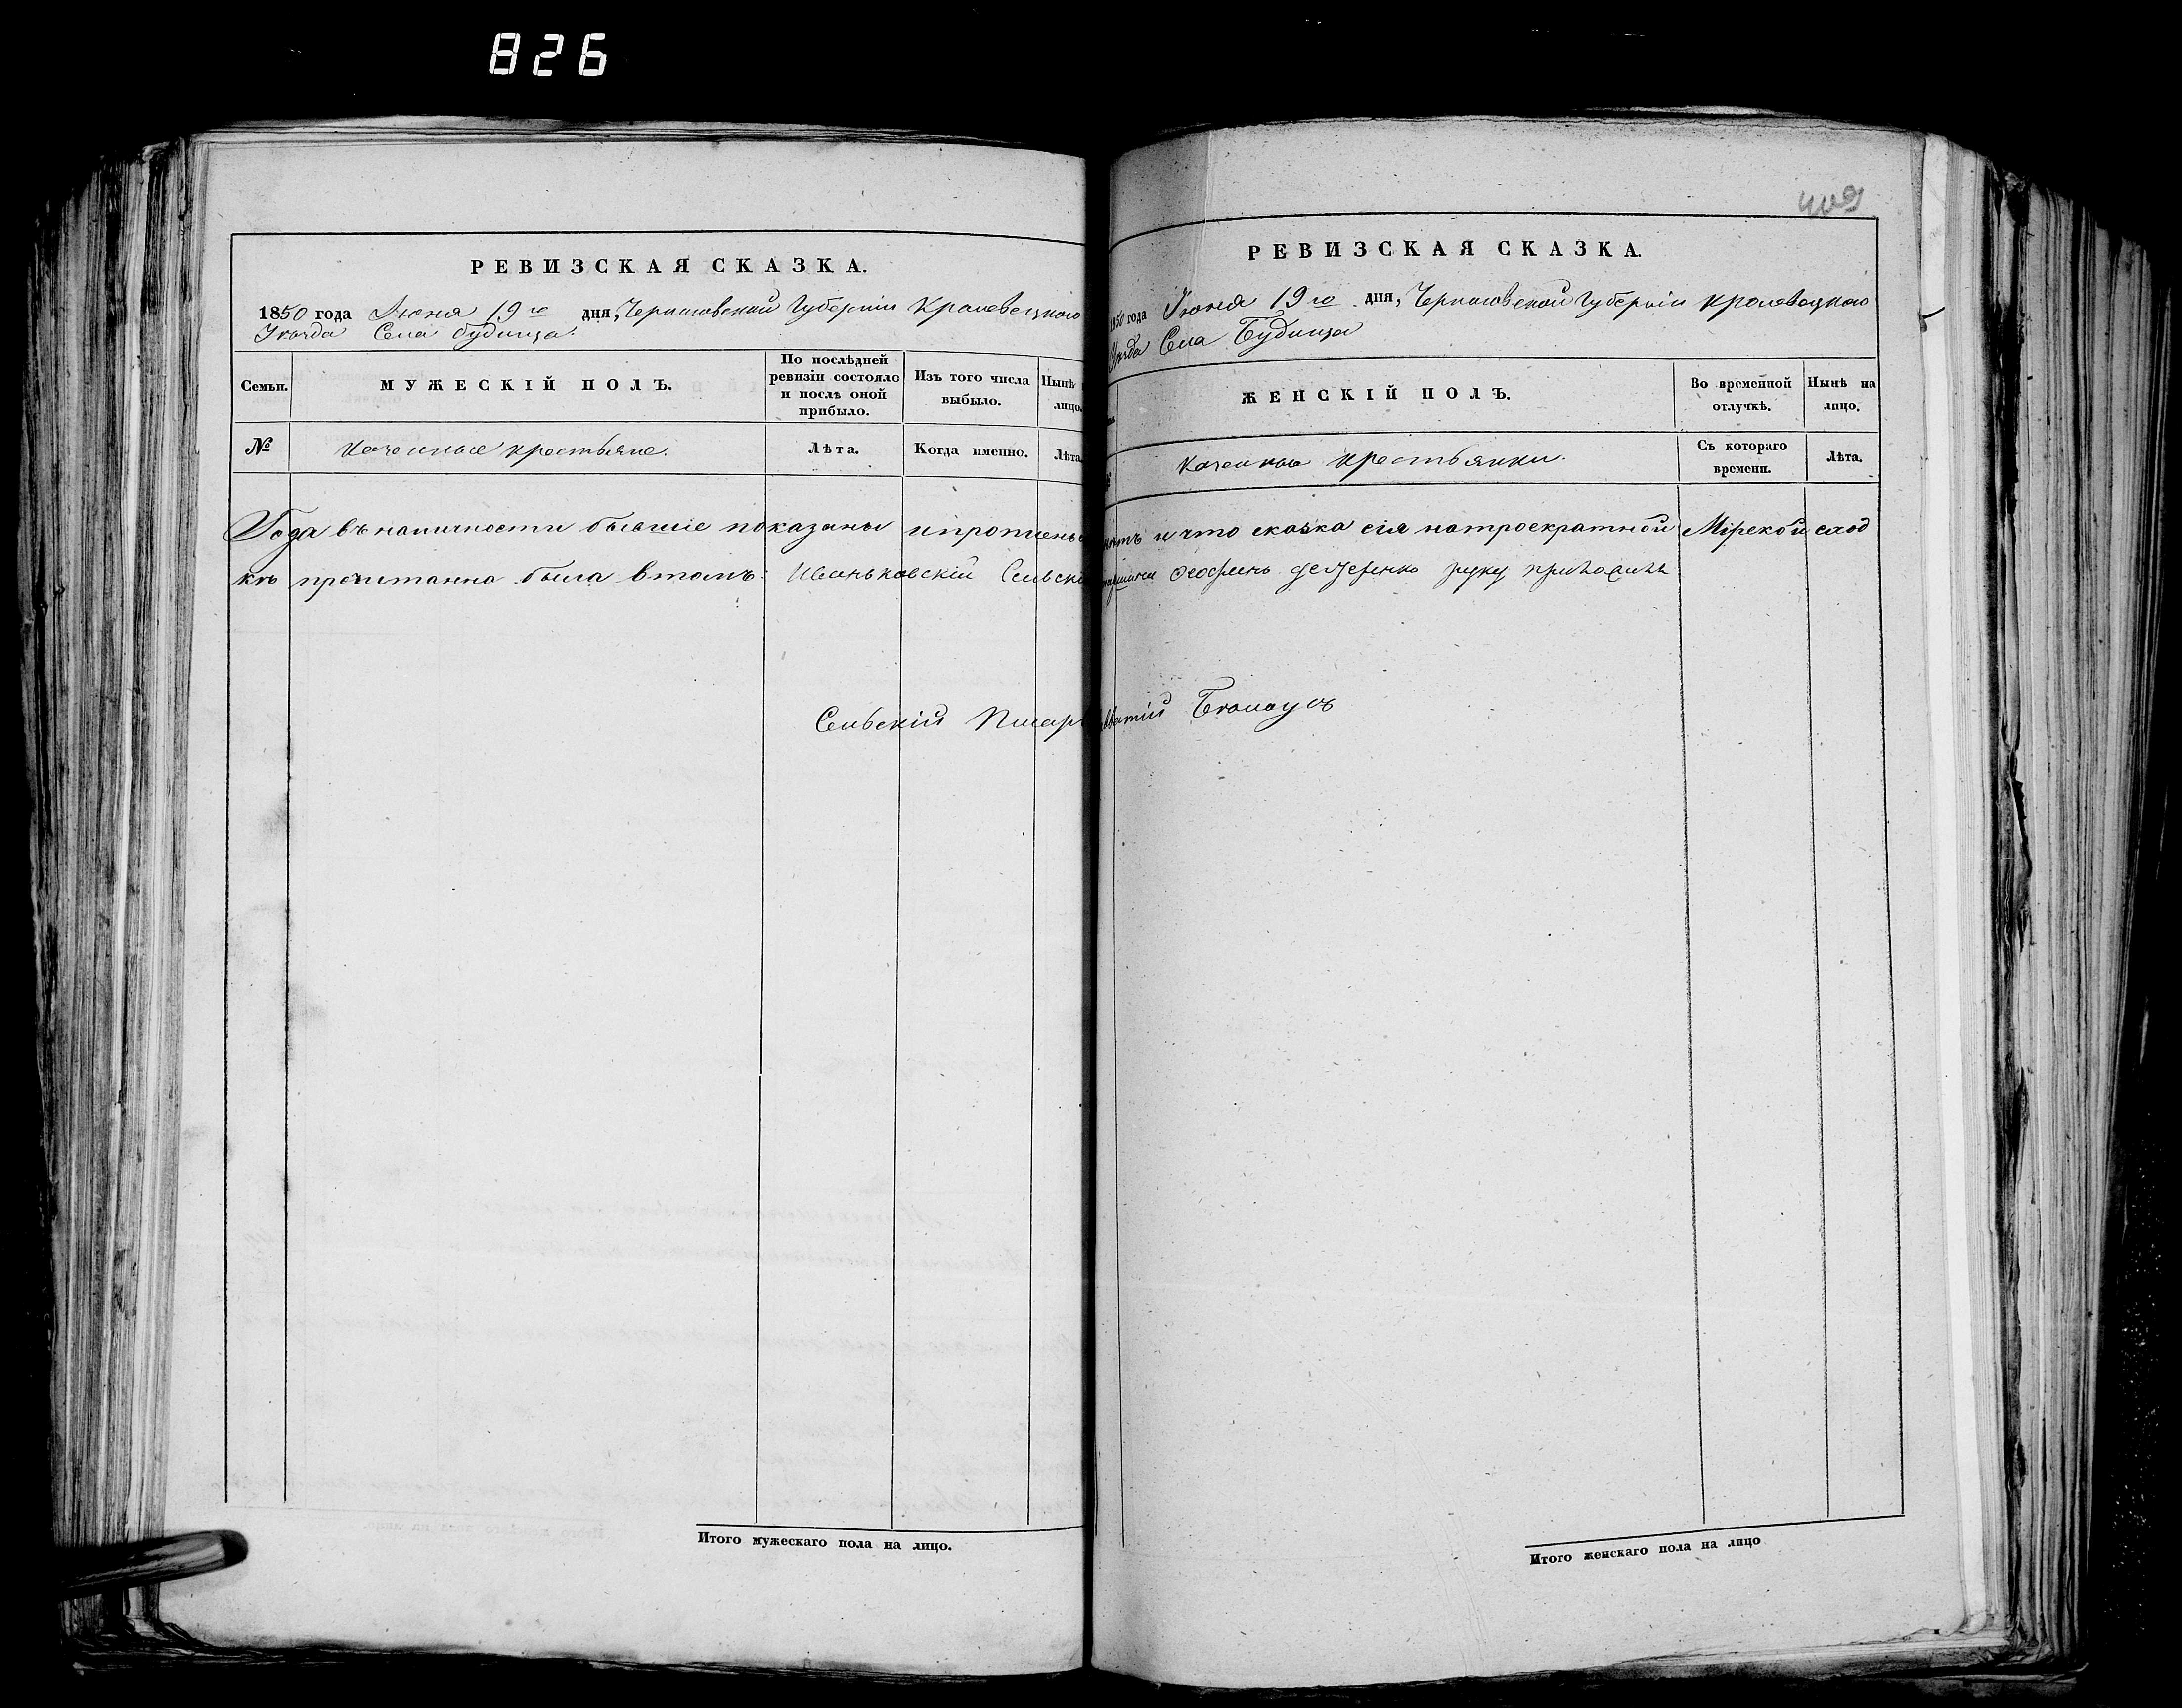 826
РЕВИЗСКАЯ СКАЗКА.
1850 года Июня 19го дня, Черниговской Губерніи Кролевецкого
Уѣзда Села Будища.
Семьи.
МУЖЕСКІЙ ПОЛЪ.
По послѣдней
ревизіи состояло
и послѣ оной
прибыло.
Изъ того числа
выбыло.
Нынѣ
лицо.
№
Казенные крестьяне.
Лѣта.
Когда именно.
Лѣта.
Года въ наличности бывшіе показаны
къ прочитанна была втомъ: Иваньковскій Сельскі
Сельскій Писарь
Итого мужескаго пола на лицо.
409
РЕВИЗСКАЯ СКАЗКА.
1850 года Июня 19го дня, Черниговской Губерніи Кролевецкого
Уѣзда Села Будища
ЖЕНСКІЙ ПОЛЪ.
Во временной
отлучкѣ.
Нынѣ на
лицо.
Казенные крестьянки.
Съ котораго
времени.
Лѣта.
и что сказка сія натроекратной Мірской сход
руку приложилъ
Белоусъ
Итого женскаго пола на лицо